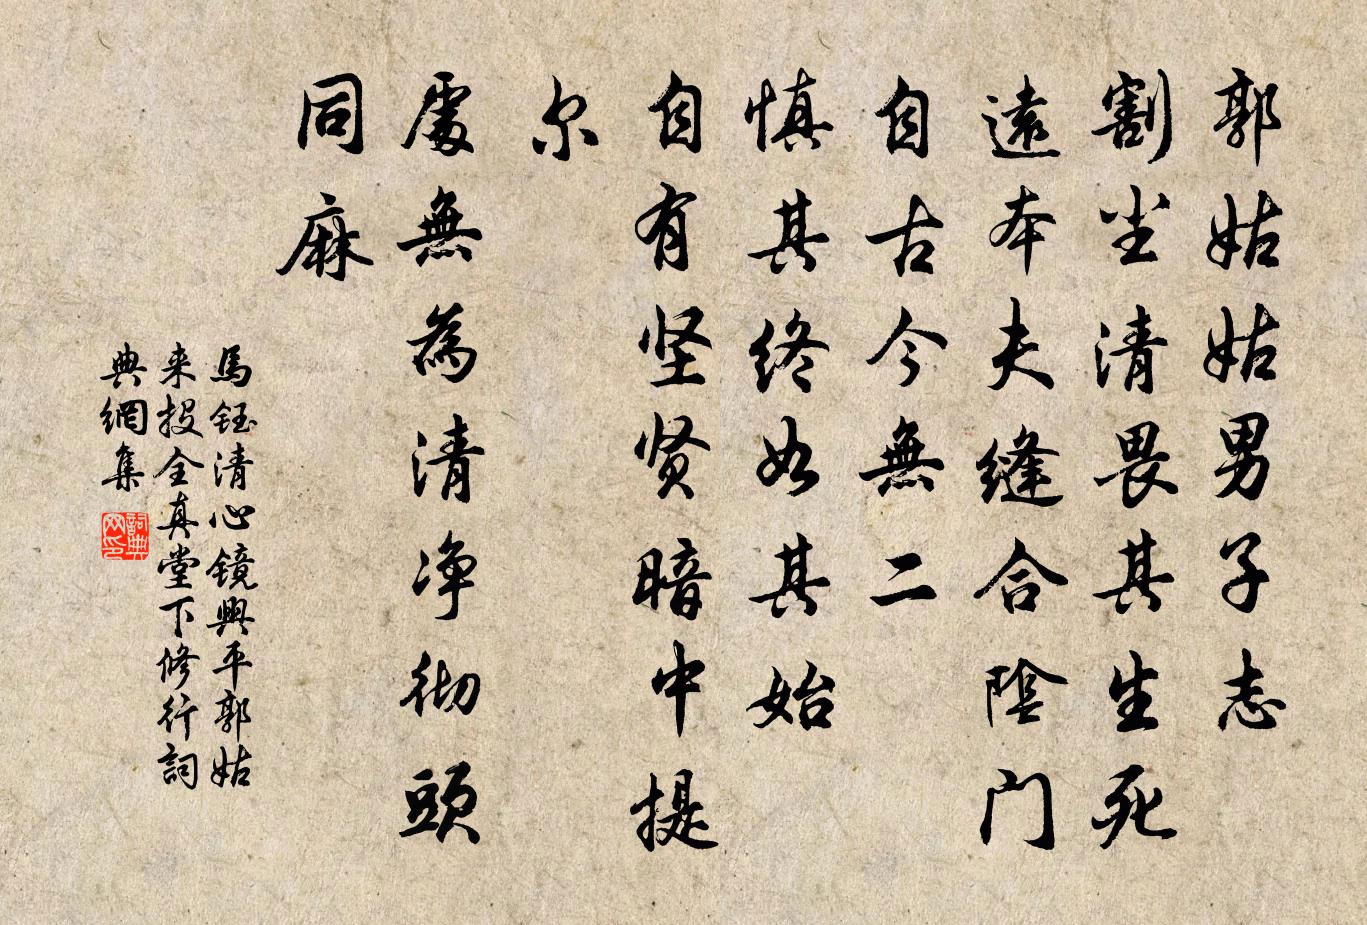 郭姑姑男子志
割尘清畏其生死
遠本夫缝合陰门
自古今無二
慎其终如其始
自有坚贤暗中提
尔
處無為清净彻頭
同麻
馬钰清心镜興平郭姑
来投全真堂下修行詞
典網集
詞典网印